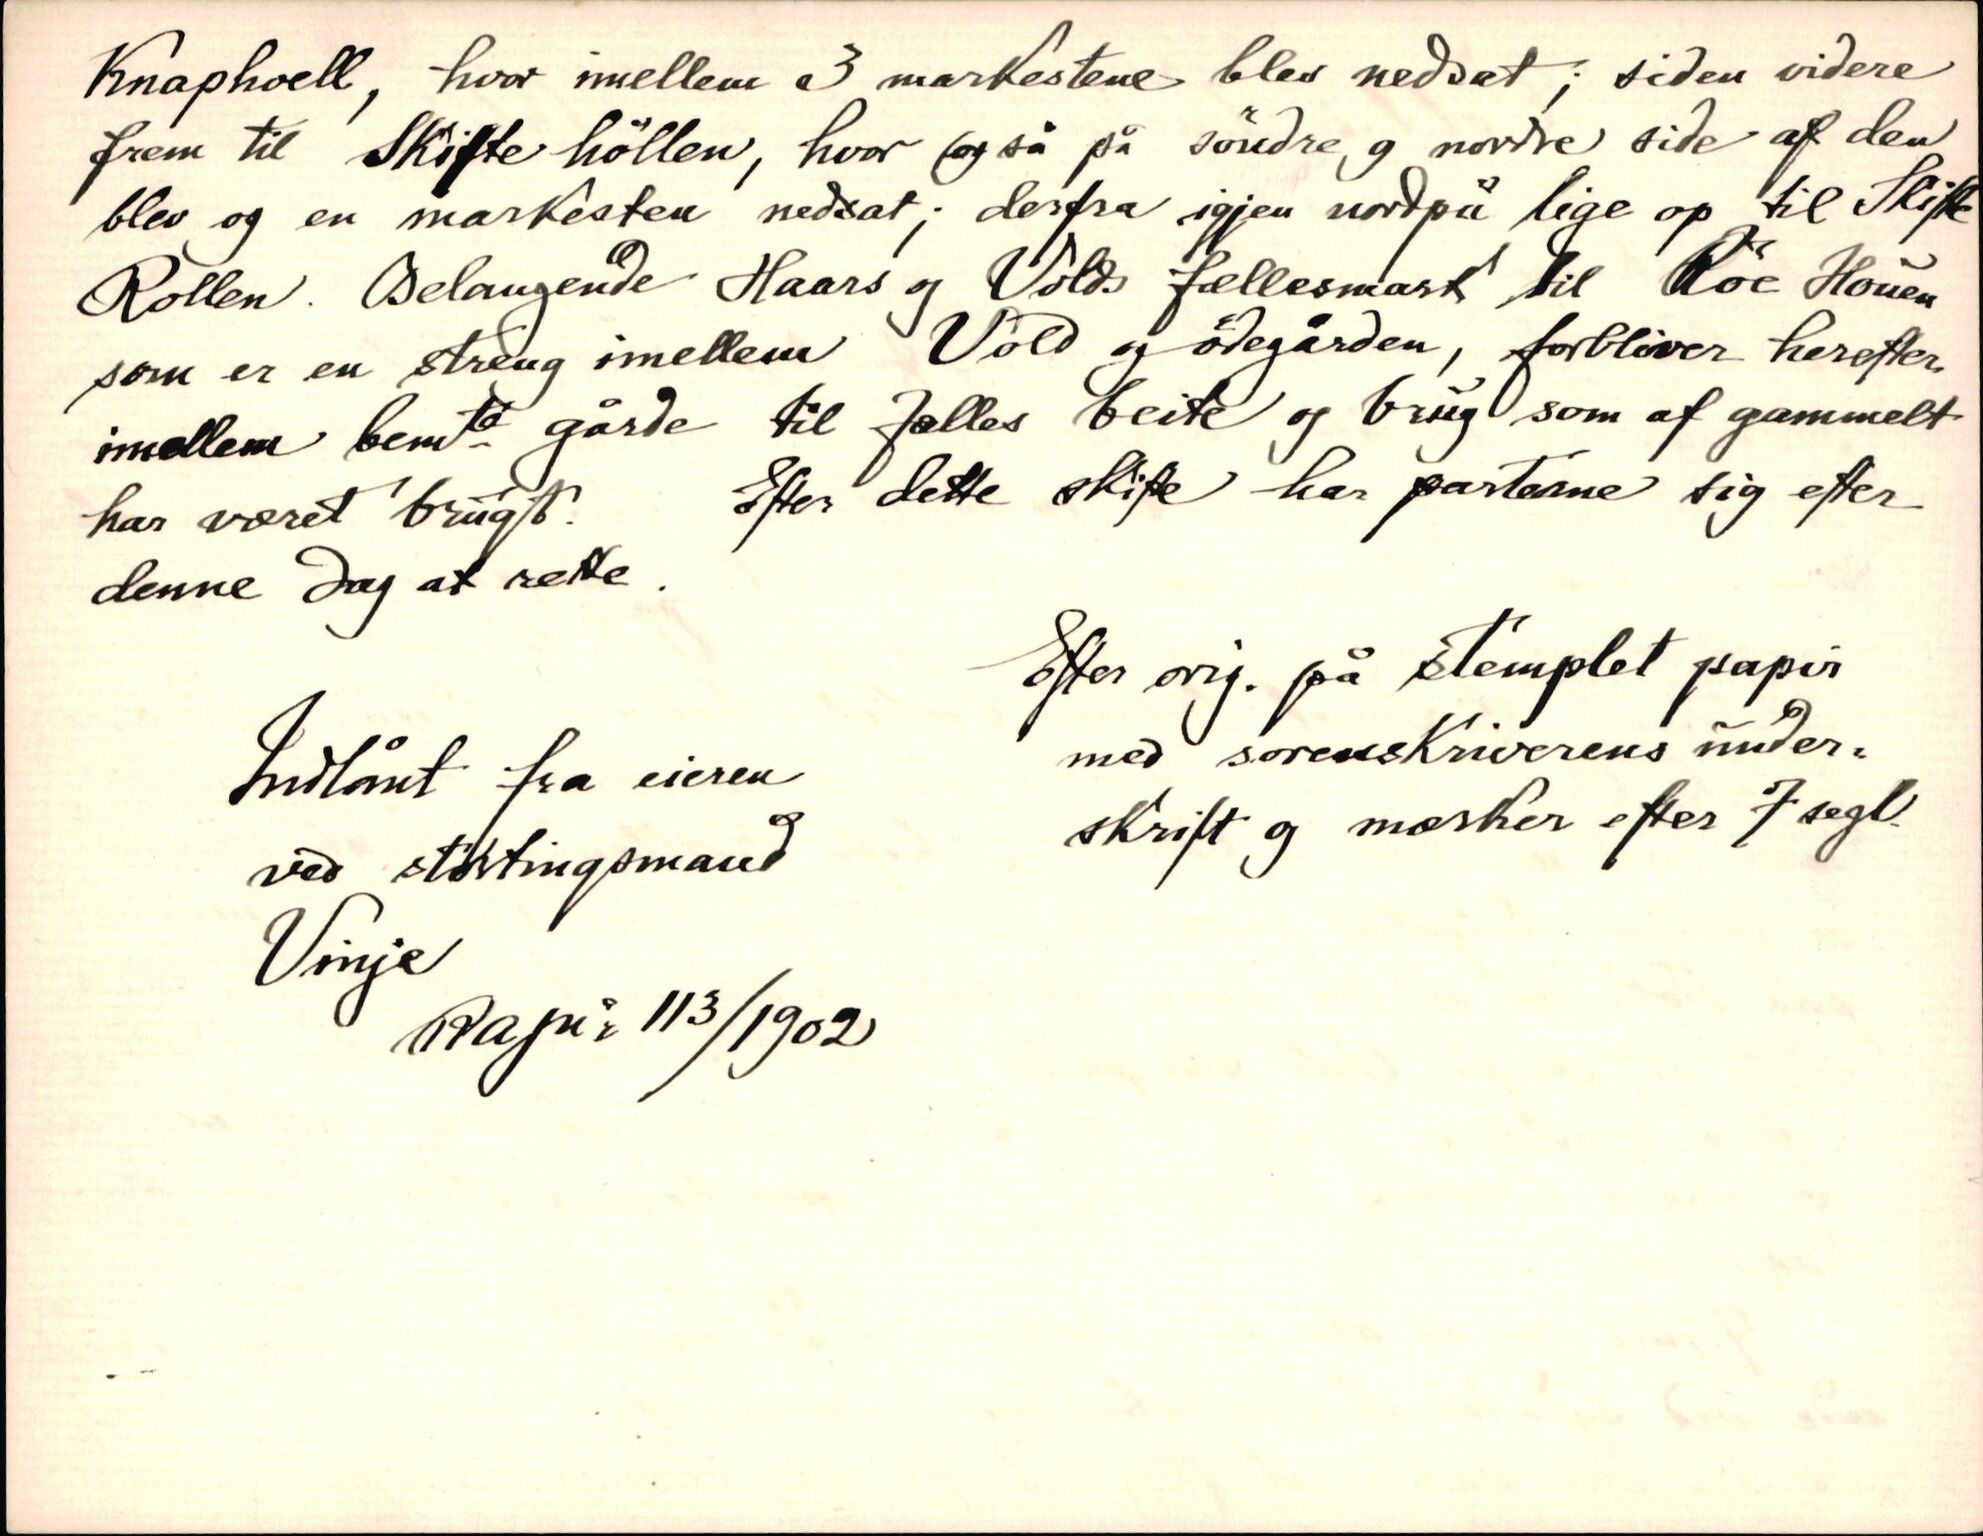 Knaphoell, hvor imellem 3 markestene blev nedsat; siden videre
frem til Skiftehöllen, hvor også på söndre og nordre side af den
blev og en markesten nedsat; derfra igjen nordpå lige op til Skifte
Rollen. Belangende Haars og Volds fællesmark til Röe Houen
som er en streng imellem Vold og ödegården, forbliver herefter
imellem bemte gårde til fælles beite og brug som af gammelt
har været brugt. Efter dette skifte har parterne sig efter
denne dag at rette.
Efter orig. på stemplet papir
med sorenskriverens under-
skrift og mærker efter 7 segl.
Indlånt fra eieren
ved stortingsmand
Vinje
Papir 113/1902